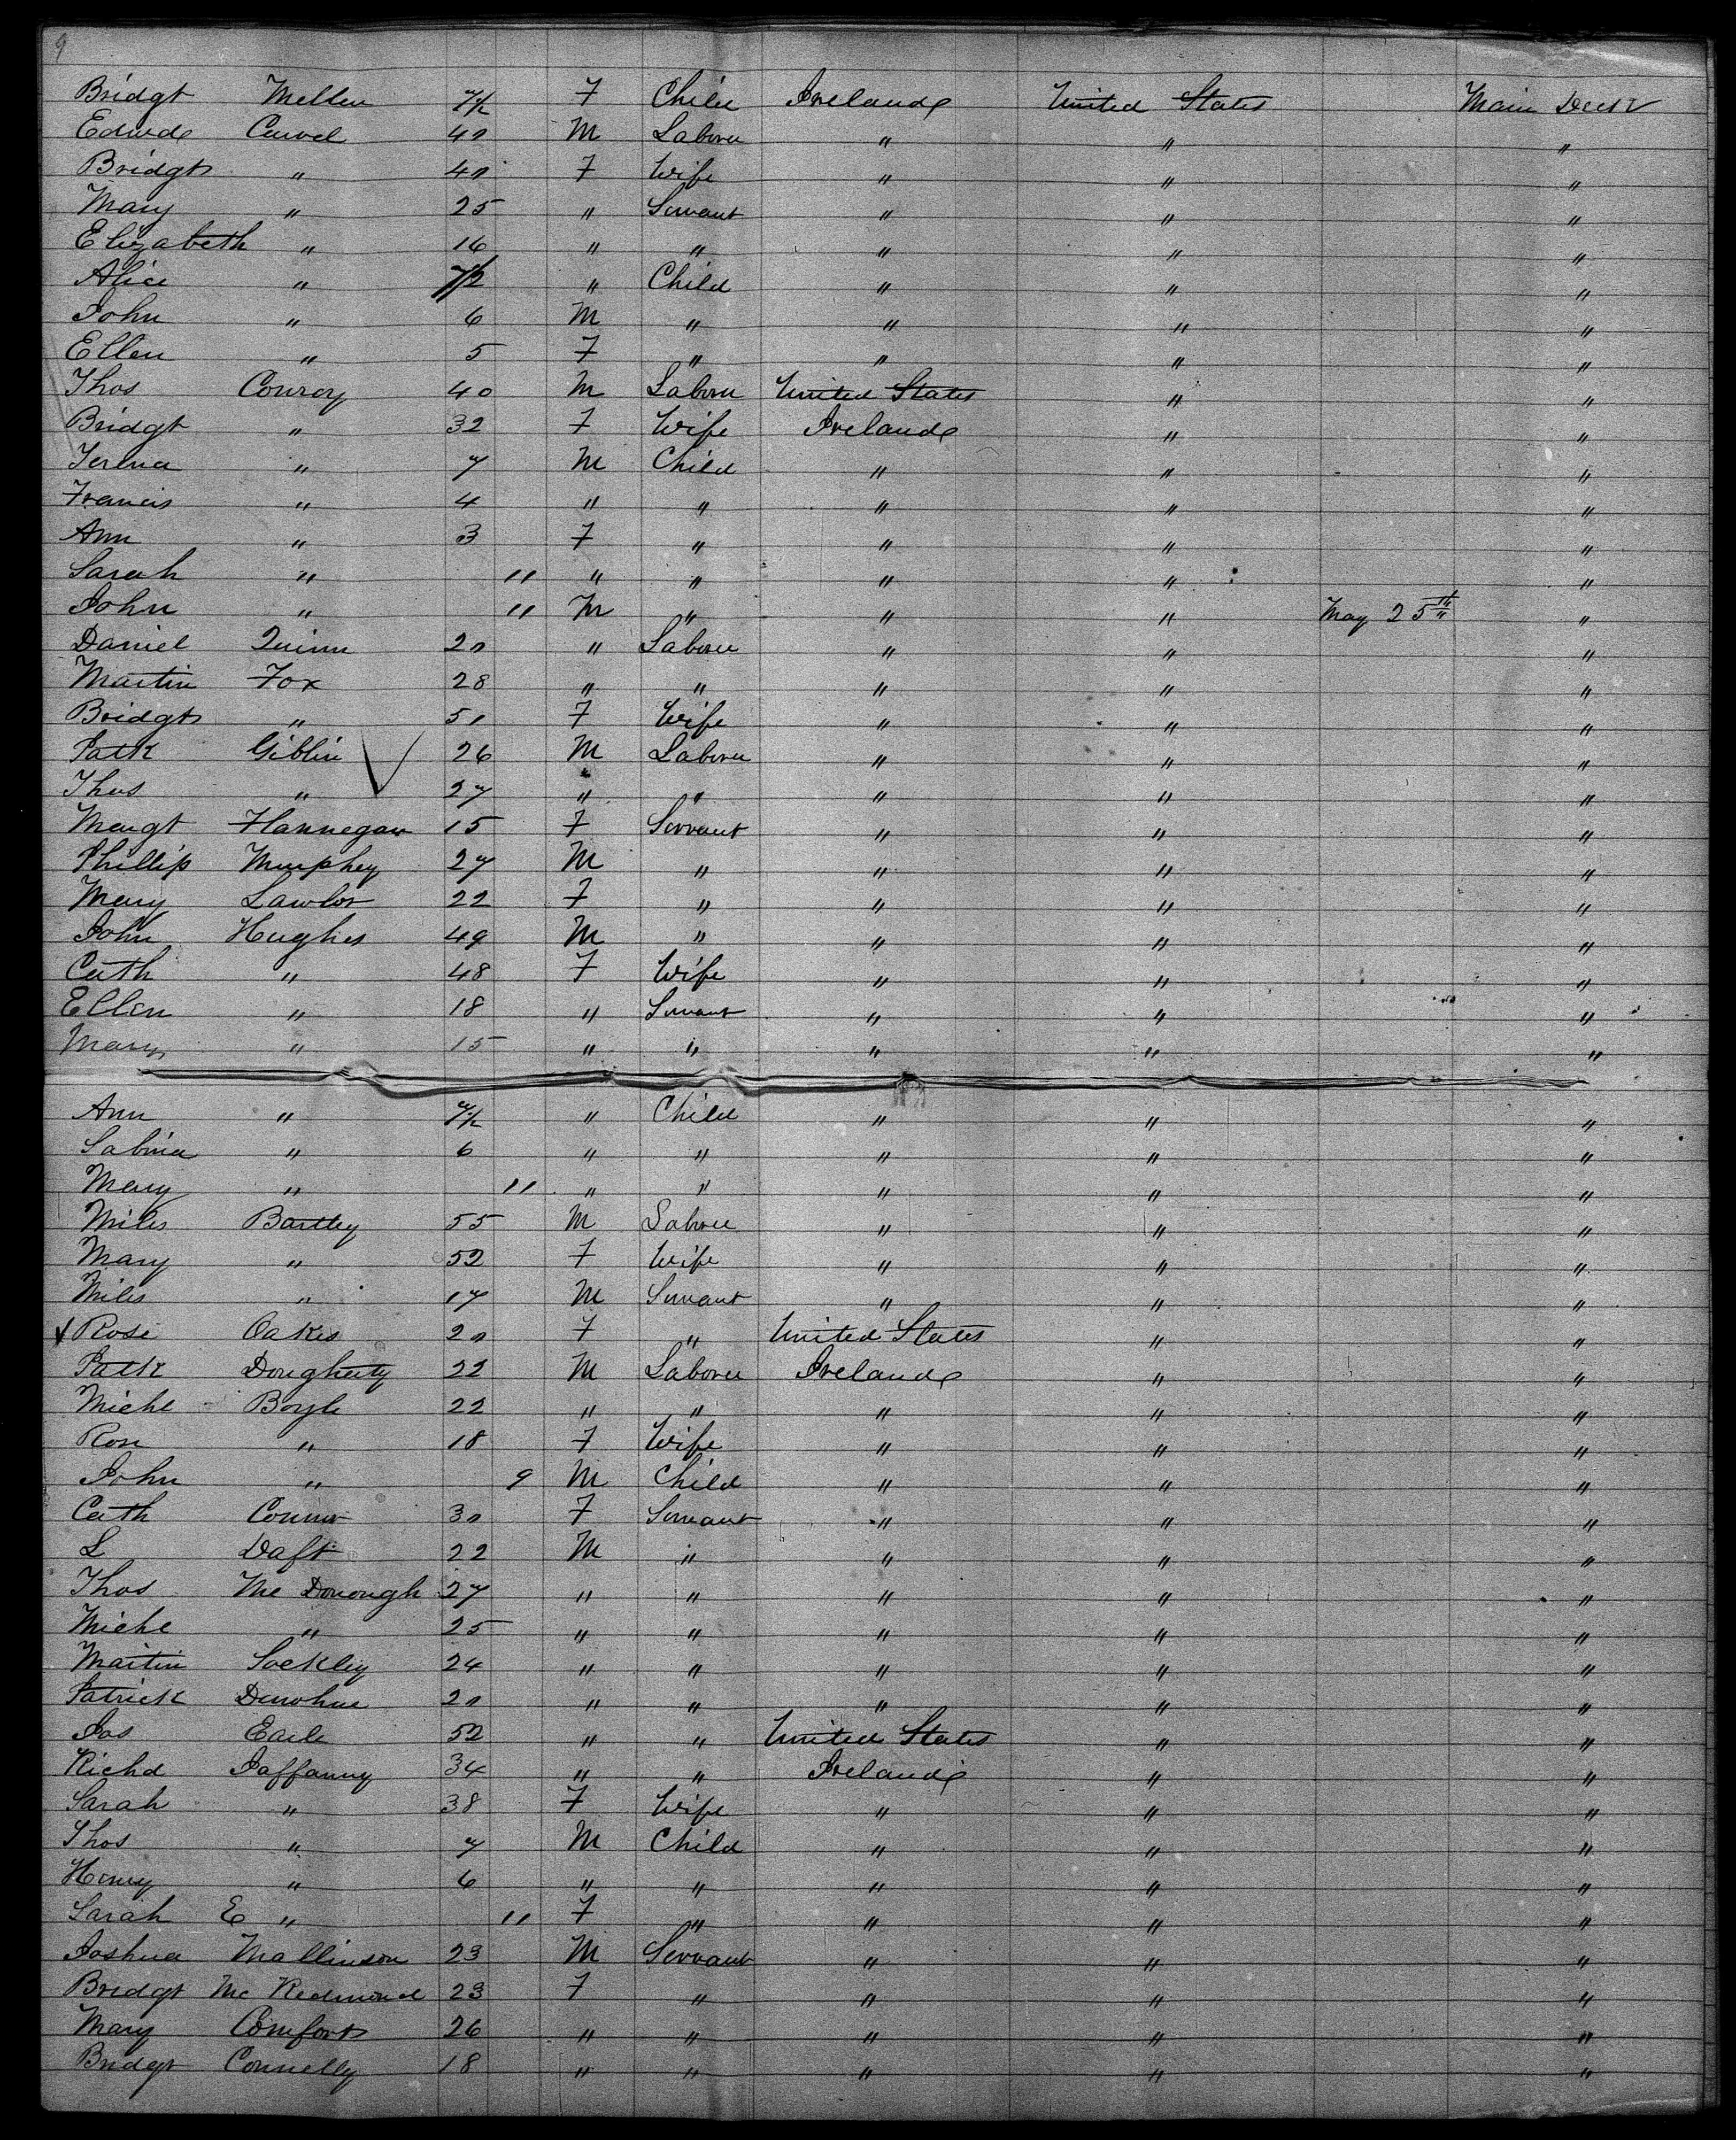 9
Bridgt Mellen 7/12 F Child Ireland United States Main Deck
Edwd Carvel 40 M Laborer " " "
Bridgt " 40 F Wife " " "
Mary " 25 " Servant " " "
Elizabeth " 16 " " " " "
Alice " 7/2 " Child " " "
John " 6 M " " " "
Ellen " 5 F " " " "
Thos Conroy 40 M Laborer United States " "
Bridgt " 32 F Wife Ireland " "
" 7 M Child " " "
Francis " 4 " " " " "
Ann " 3 F " " " "
Sarah " 11 " " " " "
John " 11 M " " " May 25th "
Daniel Quinn 20 " Laborer " " "
Martin Fox 28 " " " " "
Bridgt " 50 F Wife " " "
Patk Giblin 26 M Laborer " " "
Thos " 27 " " " " "
Margt Flannegan 15 F Servant " " "
Phillip Murphey 27 M " " " "
Mary Lawlor 22 F " " " "
John Hughes 49 M " " " "
Cath " 48 F Wife " " "
Ellen " 18 " Servant " " "
Mary " 15 " " " " "
Ann " 7/12 " Child " " "
Sabina " 6 " " " " "
Mary " 11 " " " " "
Miles Bartley 55 M Laborer " " "
Mary " 52 F Wife " " "
Miles " 17 M Servant " " "
Rose Oakes 20 F " United States " "
Patk Dougherty 22 M Laborer Ireland " "
Michl Boyle 22 " " " " "
Rose " 18 F Wife " " "
John " 9 M Child " " "
Cath Connor 30 F Servant " " "
L Daft 22 M " " " "
Thos Mc Donough 27 " " " " "
Michl " 25 " " " " "
Martin 24 " " " " "
Patrick Donohue 20 " " " " "
Jas Earle 52 " " United States " "
Richd Jaffanny 34 " " Ireland " "
Sarah " 38 F Wife " " "
Thos " 7 M Child " " "
Henry " 6 " " " " "
Sarah E " 11 F " " " "
Joshua Mallinson 23 M Servant " " "
Bridgt Mc Redmond 23 F " " " "
Mary Comfort 26 " " " " "
Bridgt Connelly 18 " " " " "